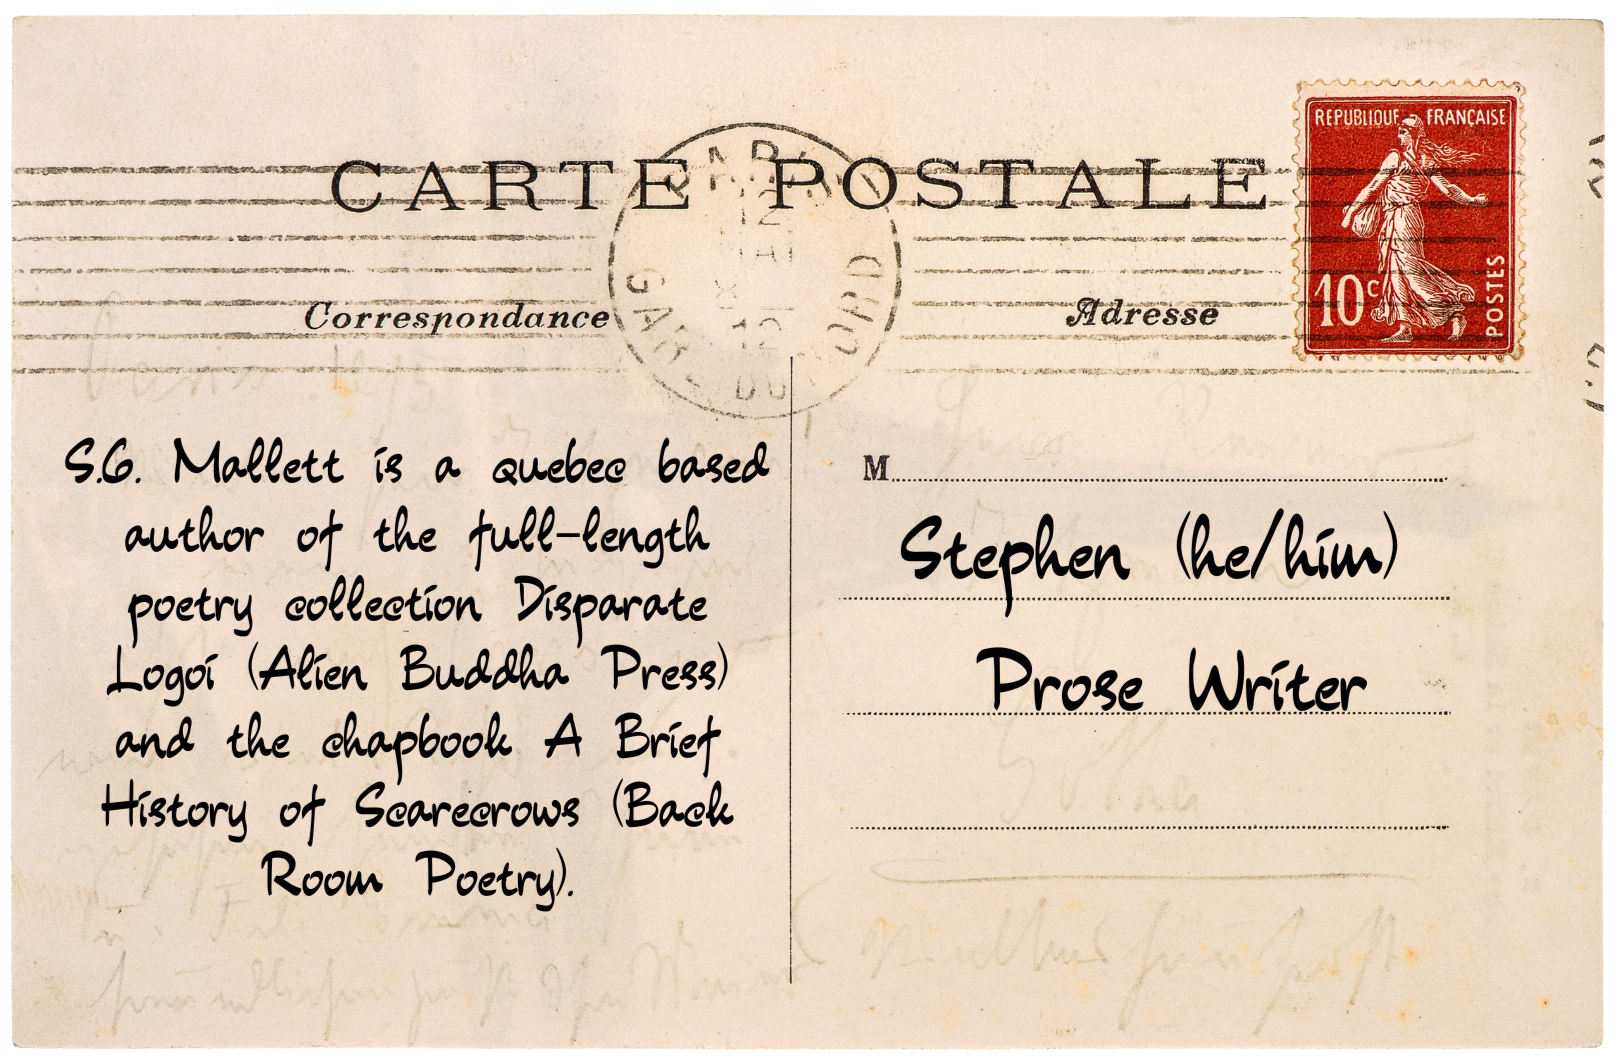 CARTE POSTALE
REPUBLIQUE FRANÇAISE
10c
POSTES
Correspondance
Adresse
S.G. Mallett is a quebec based
author of the full-length
poetry collection Disparate
Logoi (Alien Buddha Press)
and the chapbook A Brief
History of Scarecrows (Back
Room Poetry).
M
Stephen (he/him)
Prose Writer